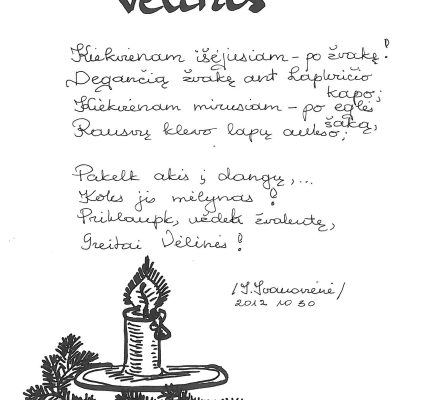 Vėlinės
Kiekvienam išėjusiam – po žvakę!
Degančią žvakę ant Lapkričio
kapo;
Kiekvienam mirusiam – po eglės
šaką,
Rausvų klevo lapų aukso;
Pakelk akis į dangų,...
Koks jis mėlynas!
Priklaupk, uždek žvakutę,
Greitai Vėlinės!
/I.Ivanovienė/
2012 10 30